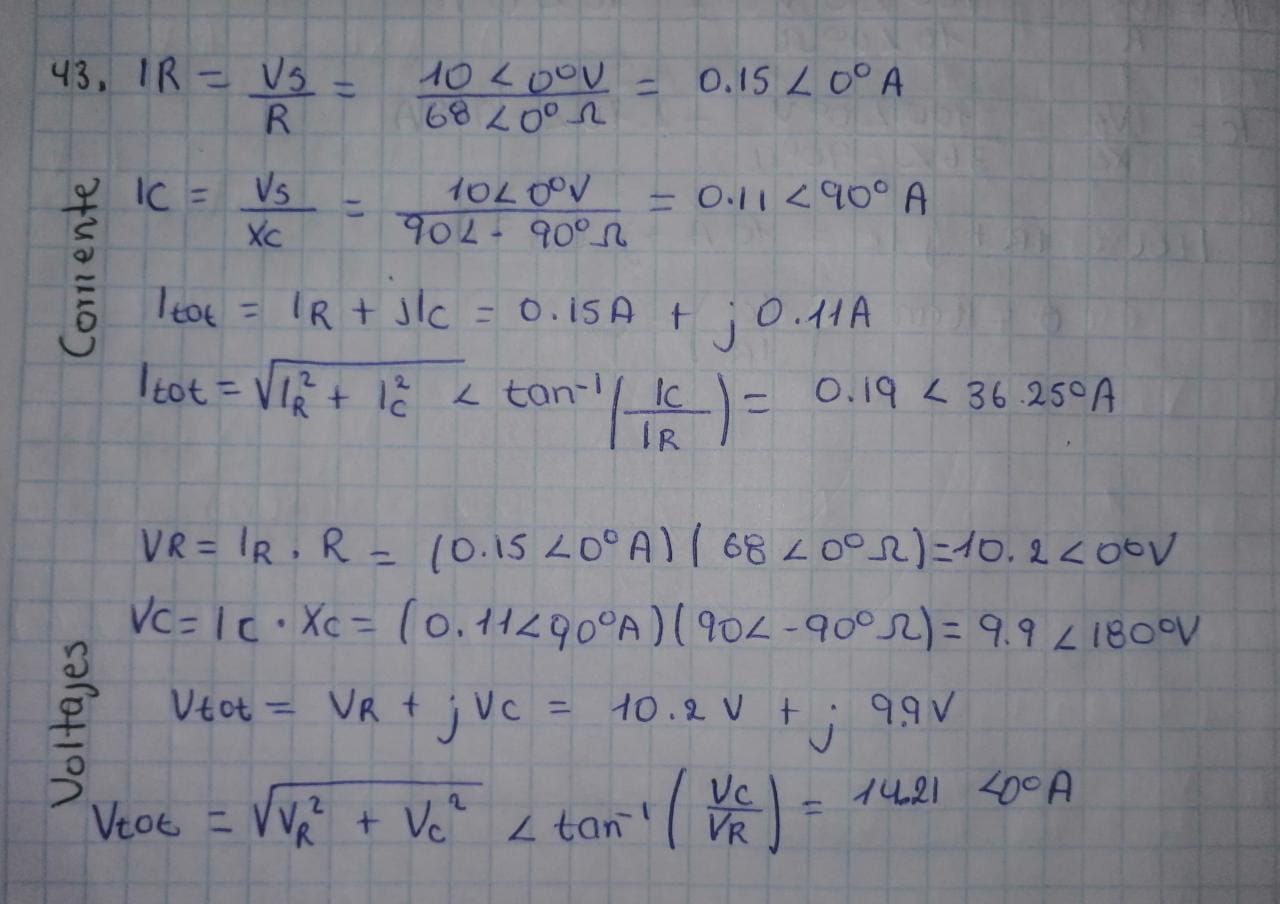 43. IR = Vs/R = 10 < 0° V / 68 < 0° Ω = 0.15 < 0° A
Corriente
IC = Vs/XC = 10 < 0° V / 90 < - 90° Ω = 0.11 < 90° A
Itot = IR + jIC = 0.15A + j 0.11A
Itot = √(IR² + IC²) < tan⁻¹ (IC/IR) = 0.19 < 36.25° A
VR = IR . R = (0.15 < 0° A) ( 68 < 0° Ω) = 10.2 < 0° V
VC = IC · XC = (0.11 < 90° A) (90 < -90° Ω) = 9.9 < 180° V
Voltajes
Vtot = VR + j VC = 10.2 V + j 9.9 V
Vtot = √(VR² + VC²) < tan⁻¹ (VC/VR) = 14.21 < 0° A